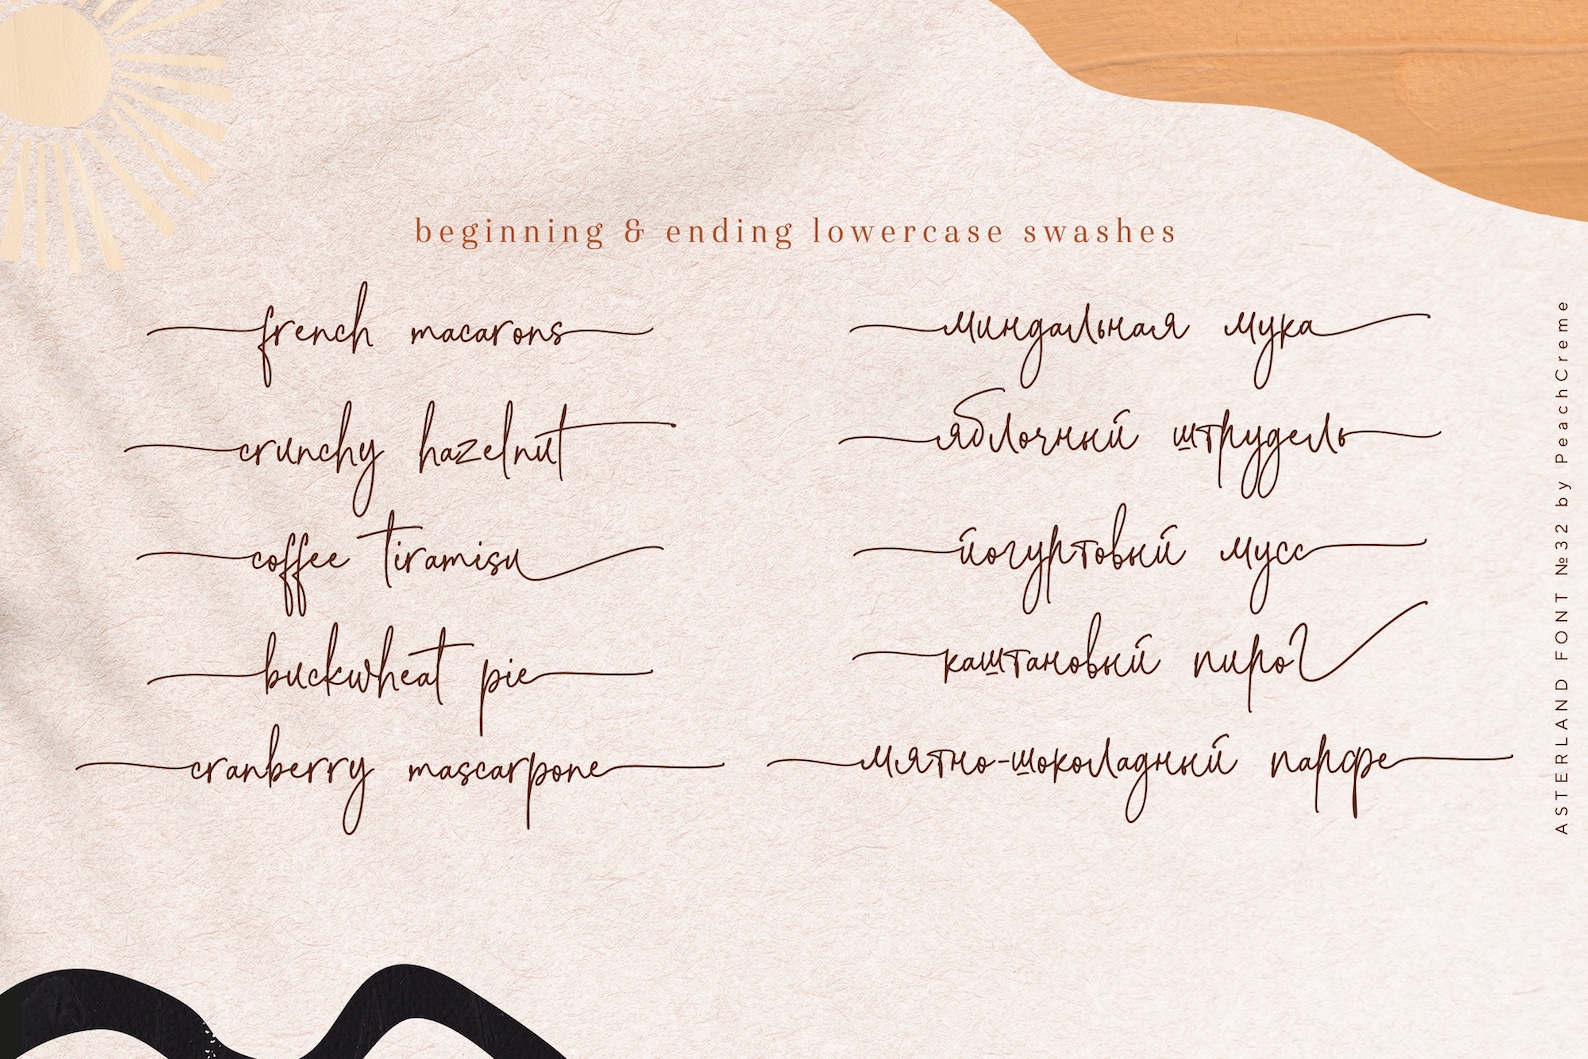 beginning & ending lowercase swashes
french macarons
crunchy hazelnut
coffee tiramisu
buckwheat pie
cranberry mascarpone
миндальная мука
яблочный штрудель
йогуртовый мусс
каштановый пирог
мятно-шоколадный парфе
ASTERLAND FONT №32 by PeachCreme